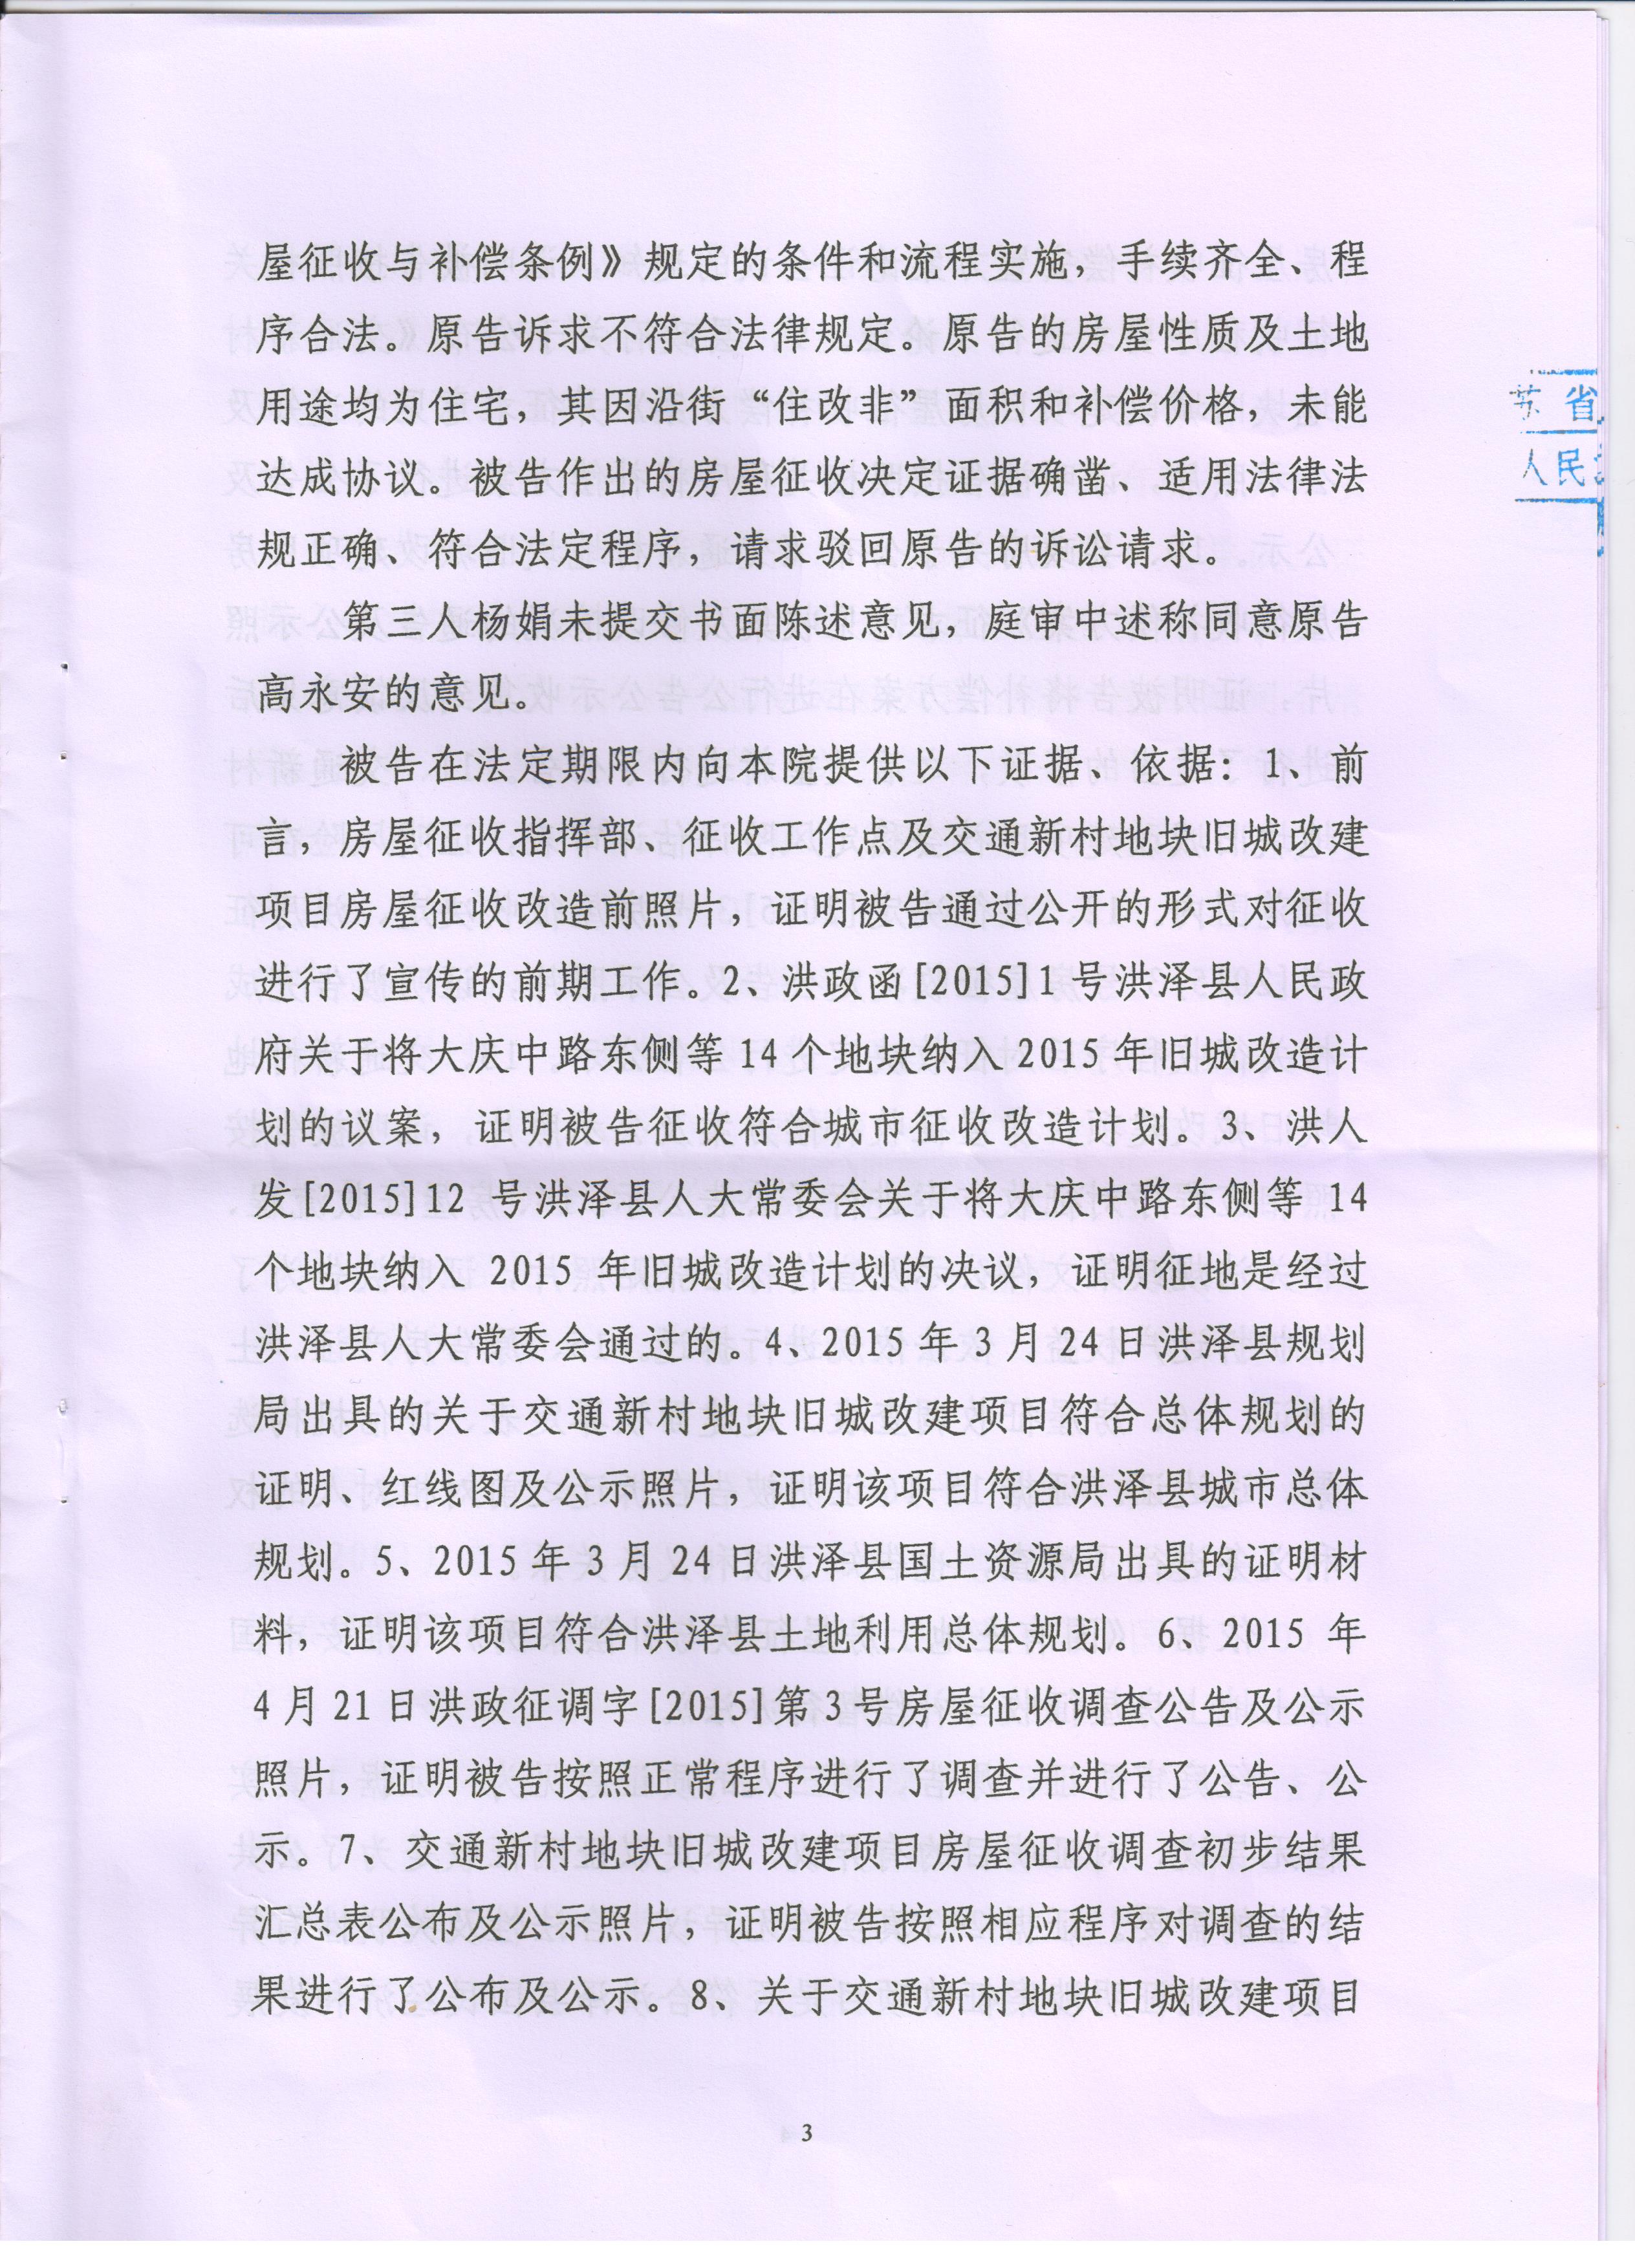 屋征收与补偿条例》规定的条件和流程实施，手续齐全、程
序合法。原告诉求不符合法律规定。原告的房屋性质及土地
用途均为住宅，其因沿街“住改非”面积和补偿价格，未能
达成协议。被告作出的房屋征收决定证据确凿、适用法律法
规正确、符合法定程序，请求驳回原告的诉讼请求。
第三人杨娟未提交书面陈述意见，庭审中述称同意原告
高永安的意见。
被告在法定期限内向本院提供以下证据、依据：1、前
言，房屋征收指挥部、征收工作点及交通新村地块旧城改建
项目房屋征收改造前照片，证明被告通过公开的形式对征收
进行了宣传的前期工作。2、洪政函[2015]1号洪泽县人民政
府关于将大庆中路东侧等14个地块纳入2015年旧城改造计
划的议案，证明被告征收符合城市征收改造计划。3、洪人
发[2015]12 号洪泽县人大常委会关于将大庆中路东侧等 14
个地块纳入 2015 年旧城改造计划的决议，证明征地是经过
洪泽县人大常委会通过的。4、2015年3月24日洪泽县规划
局出具的关于交通新村地块旧城改建项目符合总体规划的
证明、红线图及公示照片，证明该项目符合洪泽县城市总体
规划。5、2015年3月24日洪泽县国土资源局出具的证明材
料，证明该项目符合洪泽县土地利用总体规划。6、2015 年
4月21日洪政征调字[2015]第3号房屋征收调查公告及公示
照片，证明被告按照正常程序进行了调查并进行了公告、公
示。7、交通新村地块旧城改建项目房屋征收调查初步结果
汇总表公布及公示照片，证明被告按照相应程序对调查的结
果进行了公布及公示。8、关于交通新村地块旧城改建项目
3
苏省
人民